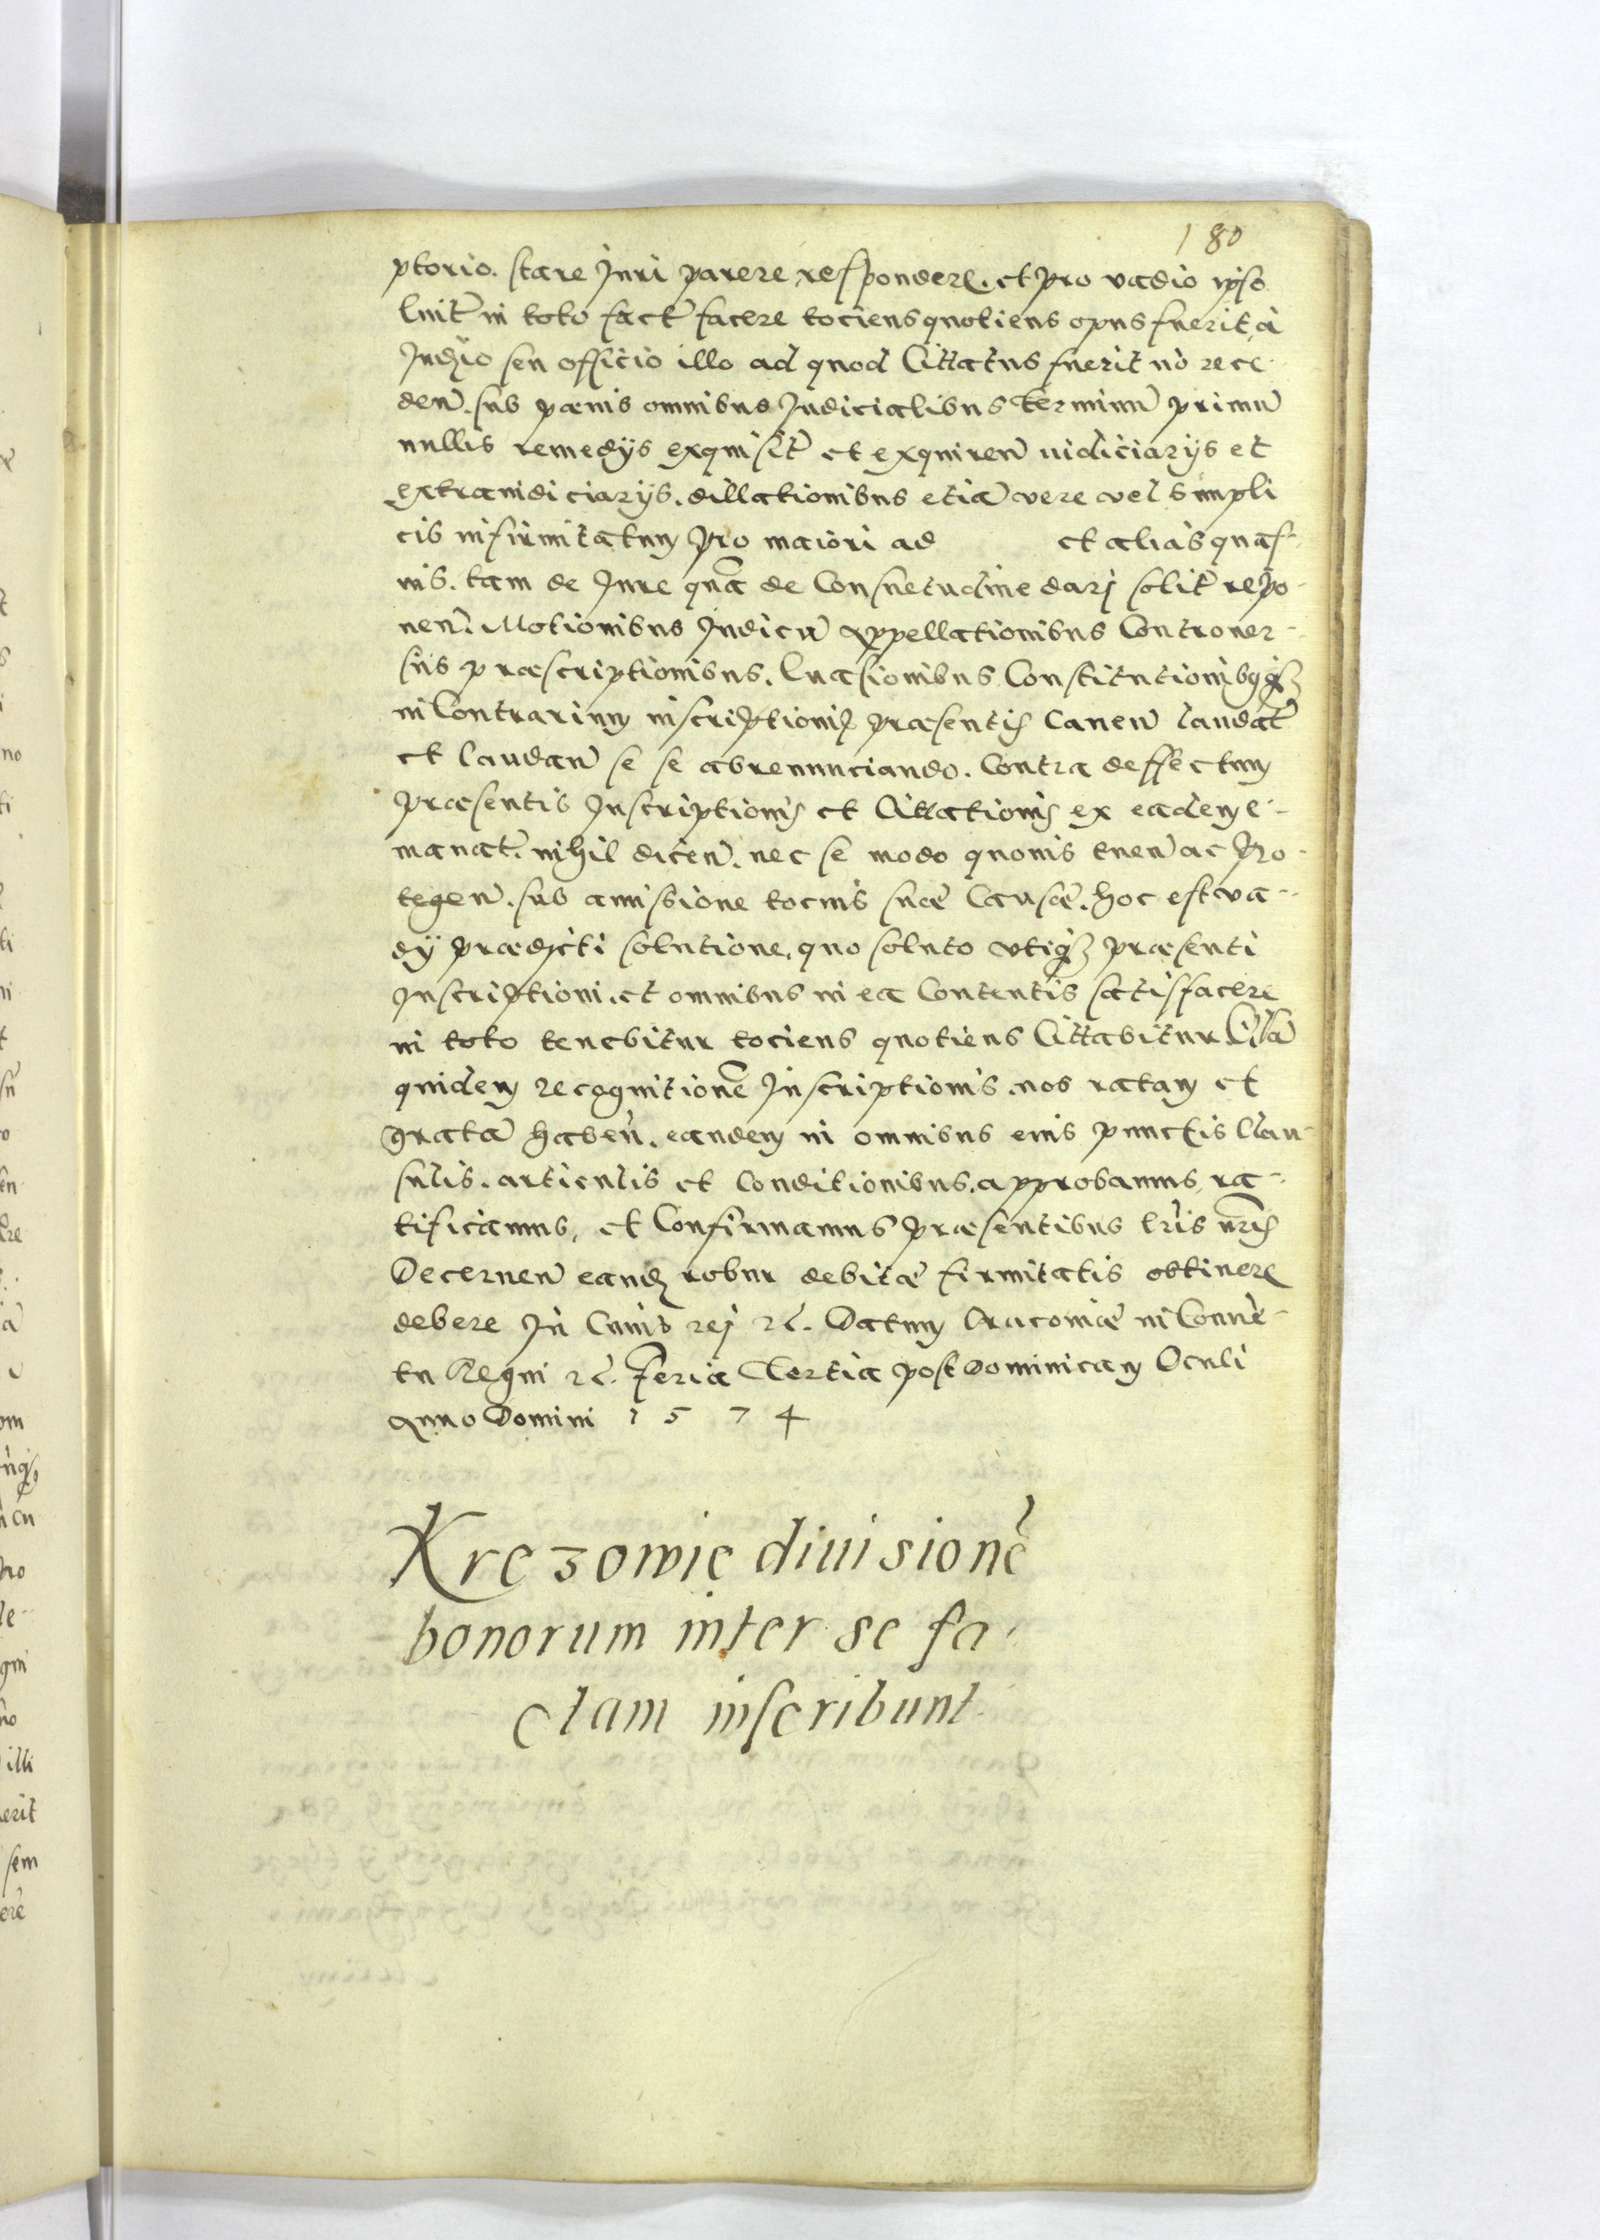 180
ptorio. stare Juri parere, respondere. et pro vadio ipso
luit̃ in toto fact̃ facere tociens quotiens opus fuerit, à
Judʒio seu officio illo ad quod Cittatus fuerit nõ rece-
deñ. sub pænis omnibus Judicialibus Terminũ primũ
nullis remedijs exquisit̃ et exquireñ iudiciarijs et
extraiudiciarijs. dillationibus etiã vere vel simpli
cis infirmitatum pro maiori ad et alias quas-
uis. tam de Jure quã de Consuetudine darj solit̃ repo-
neñ. Motionibus Judicũ appellationibus Controuer-
sijs præscriptionibus. Euasionibus Constitutionibusq3
in Contrarium inscriptionis præsentis Caneñ laudat̃
et laudañ se se abrenunciando. Contra deffectum
præsentis Inscriptionis et Cittationis ex eadem e-
manat̃. nihil diceñ. nec se modo quouis tueñ ac pro-
tegeñ. sub amissione tocius suæ Causæ. hoc est va-
dÿ prædicti solutione, quo soluto vtiq3 præsenti
Inscriptioni. et omnibus in ea Contentis satisfacere
in toto tenebitur tociens quotiens Cittabitur
quidem recognitionẽ Inscriptionis. nos ratam et
gratã habeñ. eandem in omnibus eius punctis Clau-
sulis. articulis et Conditionibus. approbamus, ra-
tificamus, et Confirmamus præsentibus lr̃is nr̃is
Decerneñ eand̃ robur debitæ firmitatis obtinere
debere In Cuius rej ꝛc̃. Datum Cracouiæ in Conuẽ-
tu Regni ꝛc̃. Feria Tertia post Dominicam Oculi
Anno Domini 1574
Krezowie diuisionẽ
bonorum inter se fa-
ctam inscribunt